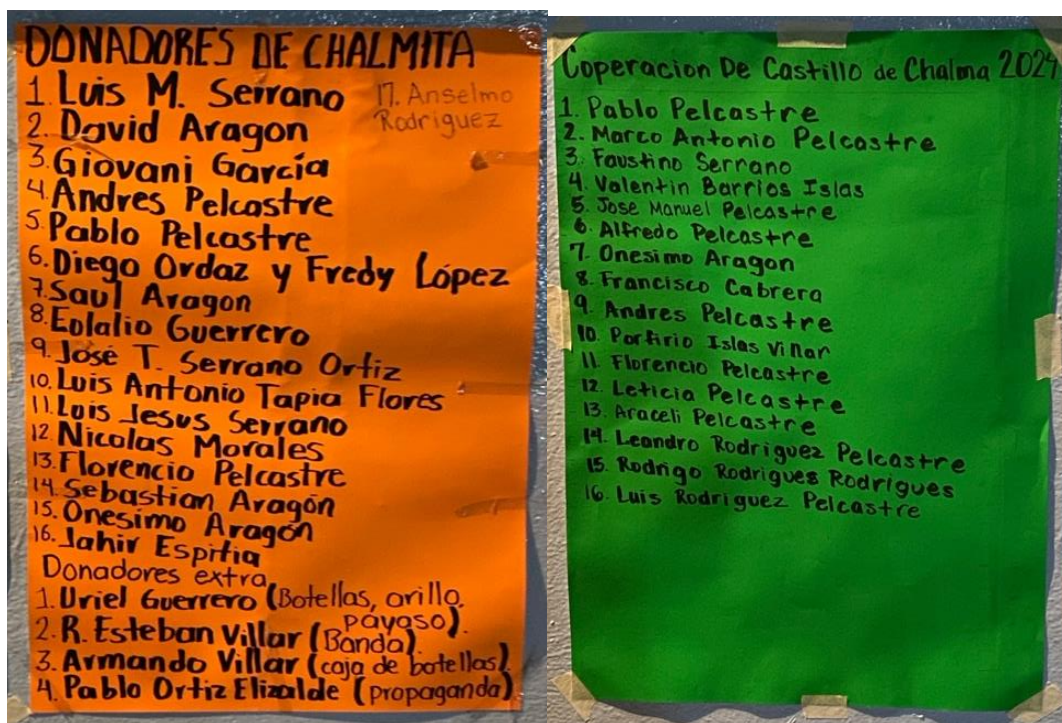 DONADORES DE CHALMITA
1. Luis M. Serrano
17. Anselmo
Rodriguez
2. David Aragon
3. Giovani García
4. Andres Pelcastre
5. Pablo Pelcastre
6. Diego Ordaz y Fredy López
7. Saul Aragon
8. Eolalio Guerrero
9. José T. Serrano Ortiz
10. Luis Antonio Tapia Flores
11. Luis Jesus Serrano
12. Nicolas Morales
13. Florencio Pelcastre
14. Sebastian Aragón
15. Onesimo Aragón
16. Jahir Espitia
Donadores extra
1. Uriel Guerrero (Botellas, orillo,
payaso).
2. R. Esteban Villar (Banda).
3. Armando Villar (caja de botellas).
4. Pablo Ortiz Elizalde (propaganda)
Coperacion De Castillo de Chalma 2024
1. Pablo Pelcastre
2. Marco Antonio Pelcastre
3. Faustino Serrano
4. Valentin Barrios Islas
5. Jose Manuel Pelcastre
6. Alfredo Pelcastre
7. Onesimo Aragon
8. Francisco Cabrera
9. Andres Pelcastre
10. Porfirio Islas Villar
11. Florencio Pelcastre
12. Leticia Pelcastre
13. Araceli Pelcastre
14. Leandro Rodriguez Pelcastre
15. Rodrigo Rodrigues Rodrigues
16. Luis Rodriguez Pelcastre